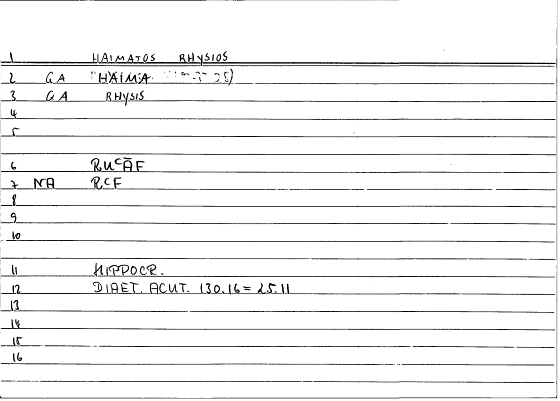 1 HAIMATOS RHYSIOS
2 GA "HAIMA
3 GA RHYSIS
4
5
6 RUᶜĀF
7 NA RᶜF
8
9
10
11 HIPPOCR.
12 DIAET. ACUT. 130.16 = 25.11
13
14
15
16